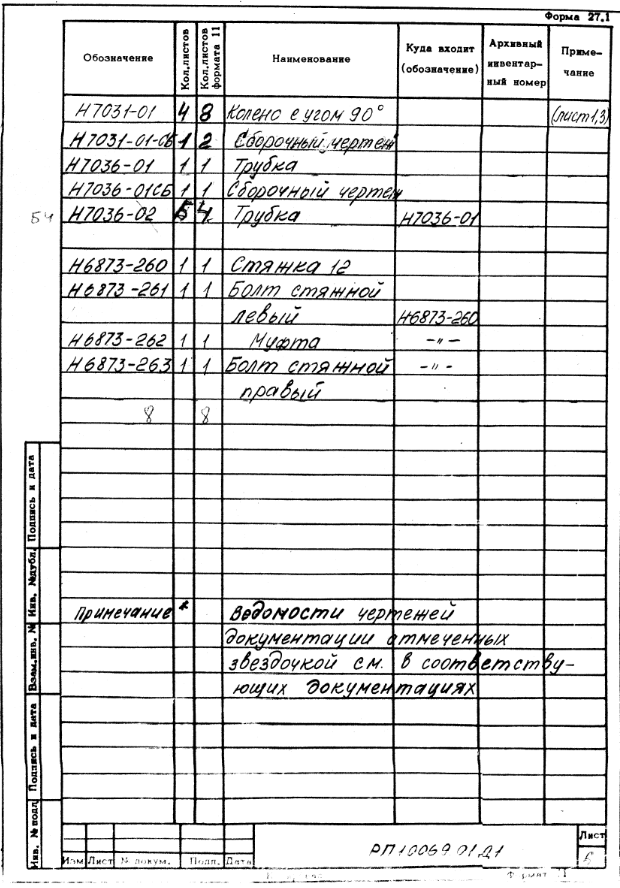 Форма 27.1
Обозначение Кол.листов Кол.листов формата 11 Наименование Куда входит (обозначение) Архивный инвентарный номер Примечание
Н7031-01 4 8 Колено с углом 90° (лист1,3)
Н7031-01-СБ 1 2 Сборочный чертеж
Н7036-01 1 1 Трубка
Н7036-01СБ 1 1 Сборочный чертеж
БЧ Н7036-02 Трубка Н7036-01
Н6873-260 1 1 Стяжка 12
Н6873-261 1 1 Болт стяжной
левый Н6873-260
Н6873-262 1 1 Муфта -"-
Н6873-263 1 1 Болт стяжной -"-
правый
8 8
Примечание * Ведомости чертежей
документации отмеченных
звездочкой см. в соответству-
ющих документациях
Инв. № подл Подпись и дата Взам.инв. № Инв. №дубл. Подпись и дата
РП10069 01.Д1
Лист
Изм Лист № докум. Подп. Дата
Формат